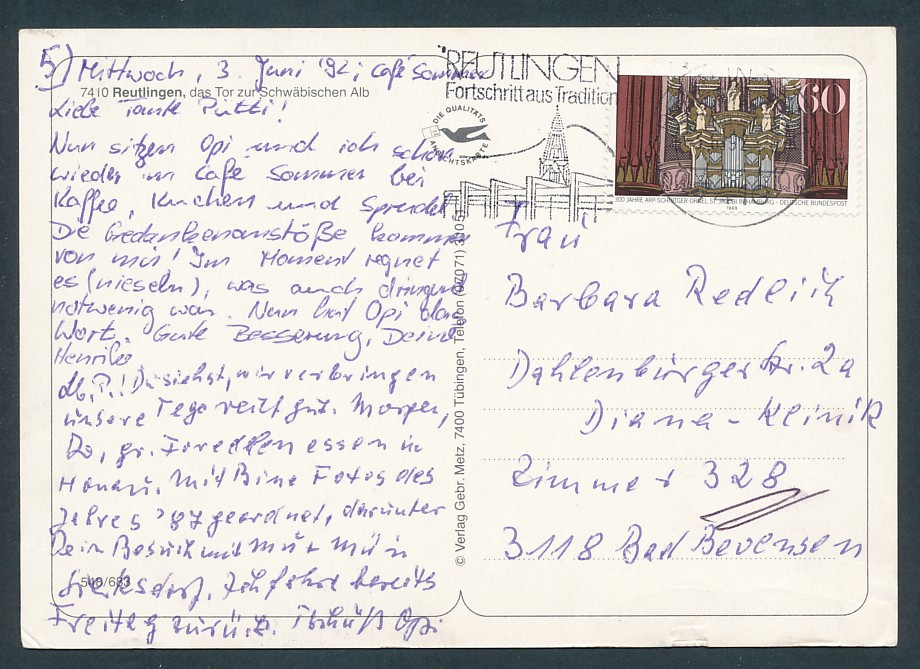 5) Mittwoch, 3. Juni '92, Café Sommer
7410 Reutlingen, das Tor zur Schwäbischen Alb
Liebe Tante Putti!
Nun sitzen Opi und ich schon
wieder im Café Sommer bei
Kaffee, Kuchen und Sprudel.
Die Gedankenanstöße kommen
von mir! Im Moment regnet
es (nieseln), was auch dringend
notwenig war. Nun hat Opi das
Wort. Gute Besserung, Deine
Henrike
Lb. P.! Du siehst, wir verbringen
unsere Tage recht gut. Morgen,
Do, gr. Forellen essen in
Honau. Mit Bine Fotos des
Jahres '87 geordnet, darunter
Dein Besuch mit
Ich fahre bereits
Freitag zurück. Tschüß Opi
546/683
© Verlag Gebr. Metz, 7400 Tübingen, Telefon (07071)
REUTLINGEN
Fortschritt aus Tradition
DIE QUALITÄTS
ANSICHTSKARTE
60
300 JAHRE ARP-SCHNITGER-ORGEL ST. JACOBI IN HAMBURG · DEUTSCHE BUNDESPOST
1989
Frau
Barbara Redlich
Dahlenburger Str. 2a
Diana-Klinik
Zimmer 328
3118 Bad Bevensen